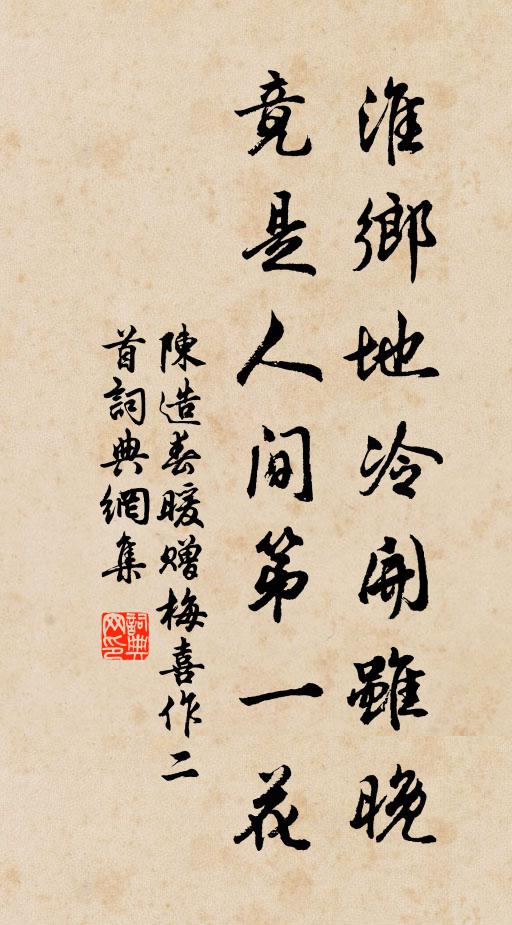 淮鄉地冷開雖晚
竟是人間第一花
陳造春暖贈梅喜作二
首詞典網集
詞典
网印